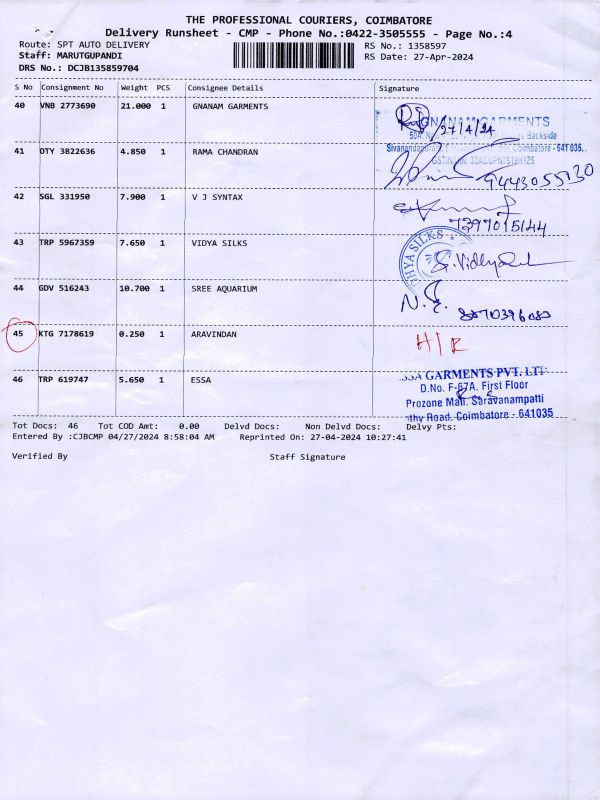 THE PROFESSIONAL COURIERS, COIMBATORE
Delivery Runsheet - CMP - Phone No.:0422-3505555 - Page No.:4
Route: SPT AUTO DELIVERY
RS No.: 1358597
Staff: MARUTGUPANDI
RS Date: 27-Apr-2024
DRS No.: DCJB135859704
S No Consignment No Weight PCS Consignee Details Signature
40 VNB 2773690 21.000 1 GNANAM GARMENTS
GNANAM GARMENTS
27/4/24
Backside
41 OTY 3822636 4.850 1 RAMA CHANDRAN
Coimbatore - 641 035.
9443055130
42 SGL 331950 7.900 1 V J SYNTAX
7397015144
43 TRP 5967359 7.650 1 VIDYA SILKS
44 GDV 516243 10.700 1 SREE AQUARIUM
45 KTG 7178619 0.250 1 ARAVINDAN
46 TRP 619747 5.650 1 ESSA
GARMENTS PVT. LTD
D.No. F-67A. First Floor
Prozone Mall. Saravanampatti
Road. Coimbatore - 641035
Tot Docs: 46 Tot COD Amt: 0.00 Delvd Docs: Non Delvd Docs: Delvy Pts:
Entered By :CJBCMP 04/27/2024 8:58:04 AM Reprinted On: 27-04-2024 10:27:41
Verified By Staff Signature